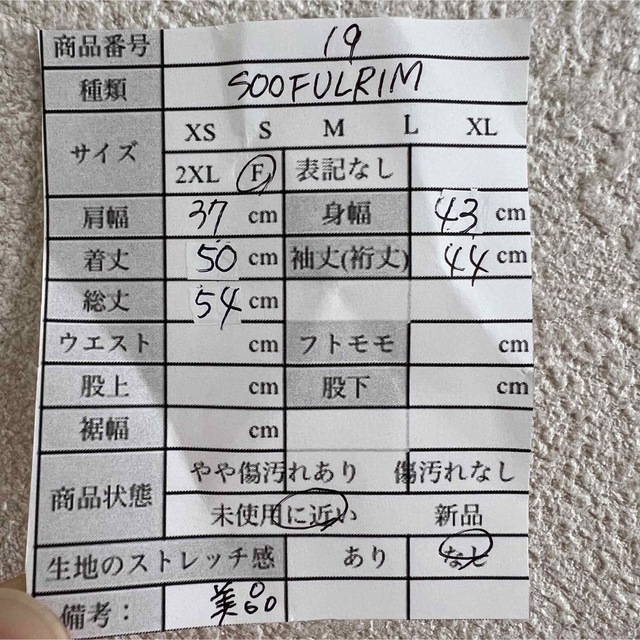 商品番号 19
種類 SOOFULRIM
サイズ XS S M L XL
2XL F 表記なし
肩幅 37 cm 身幅 43 cm
着丈 50 cm 袖丈(裄丈) 44 cm
総丈 54 cm
ウエスト cm フトモモ cm
股上 cm 股下 cm
裾幅 cm
商品状態 やや傷汚れあり 傷汚れなし
未使用に近い 新品
生地のストレッチ感 あり なし
備考： 美品